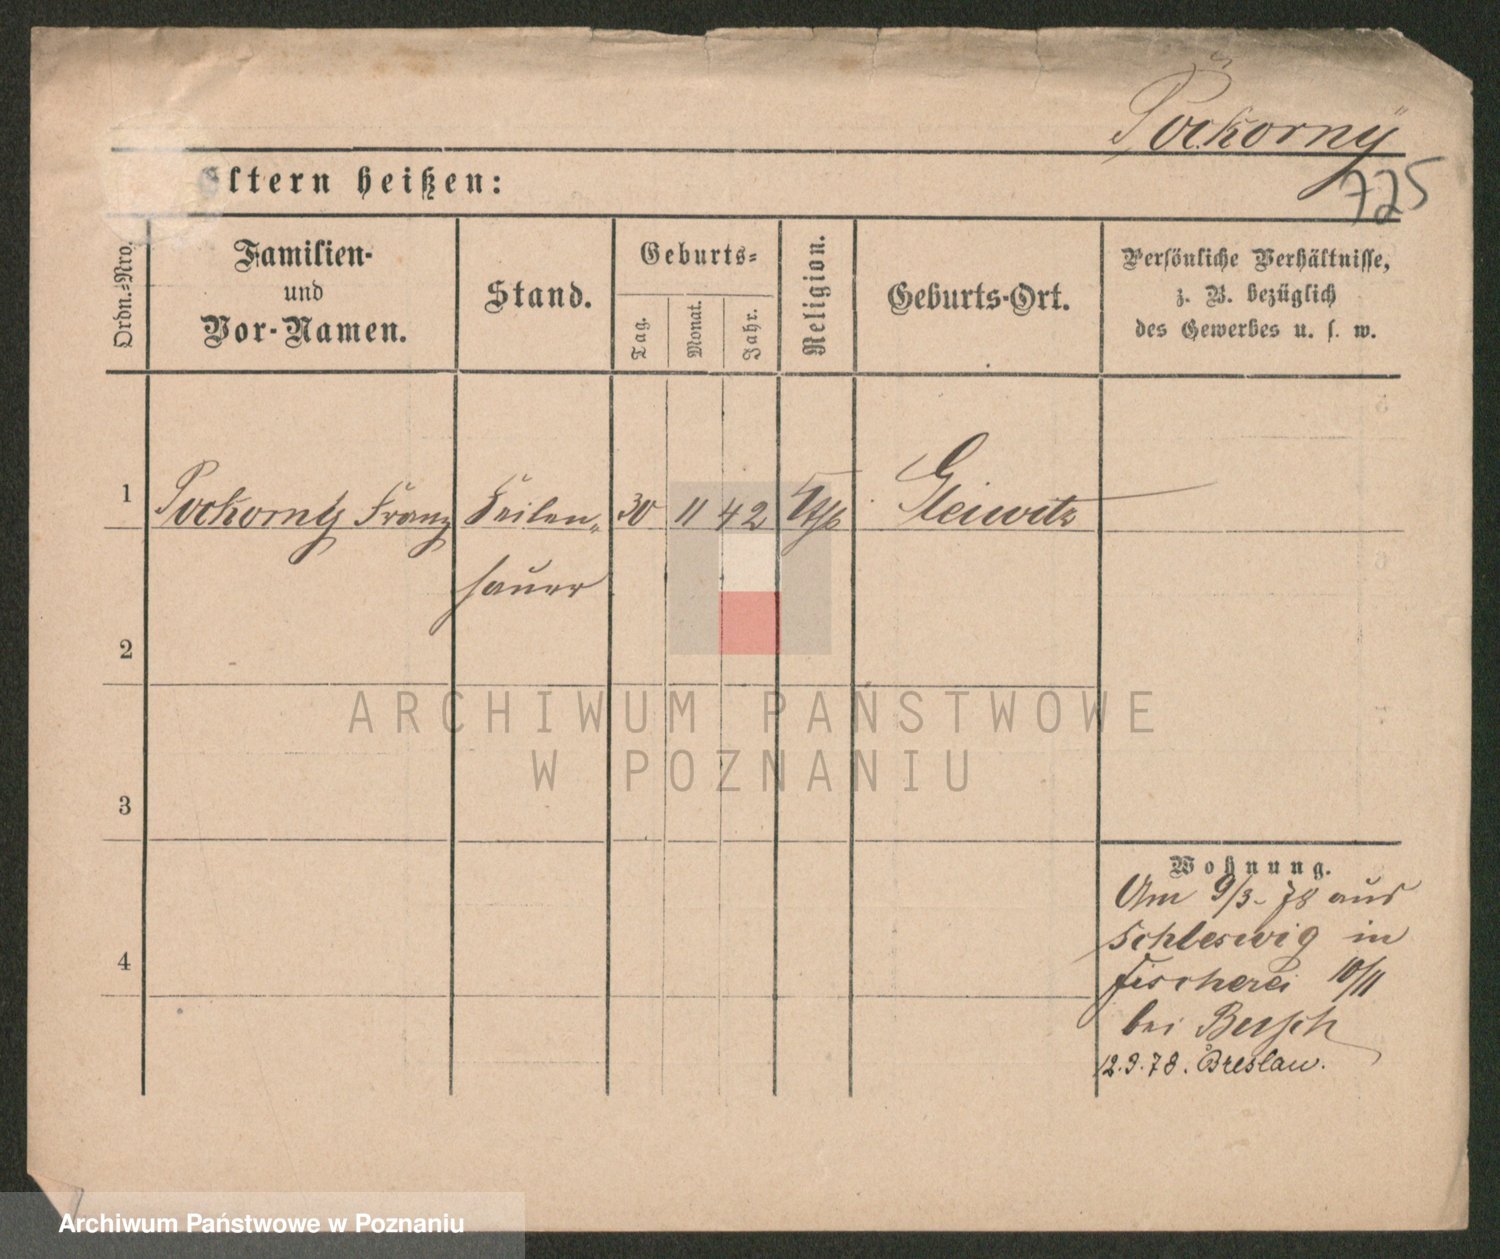 Pockorny
725
Eltern heißen:
Ordn.-Nro.
Familien-
und
Vor-Namen.
Stand.
Geburts-
Tag.
Monat.
Jahr.
Religion.
Geburts-Ort.
Persönliche Verhältnisse,
z. B. bezüglich
des Gewerbes u. s. w.
1 Pockorny Franz Feilen- 30 11 42 Gleiwitz
hauer
2
3
4
Wohnung.
Am 9/3. 78 aus
Schleswig in
Fischerei 10/11
bei Busch
12.9.78. Breslau.
ARCHIWUM PAŃSTWOWE
W POZNANIU
Archiwum Państwowe w Poznaniu